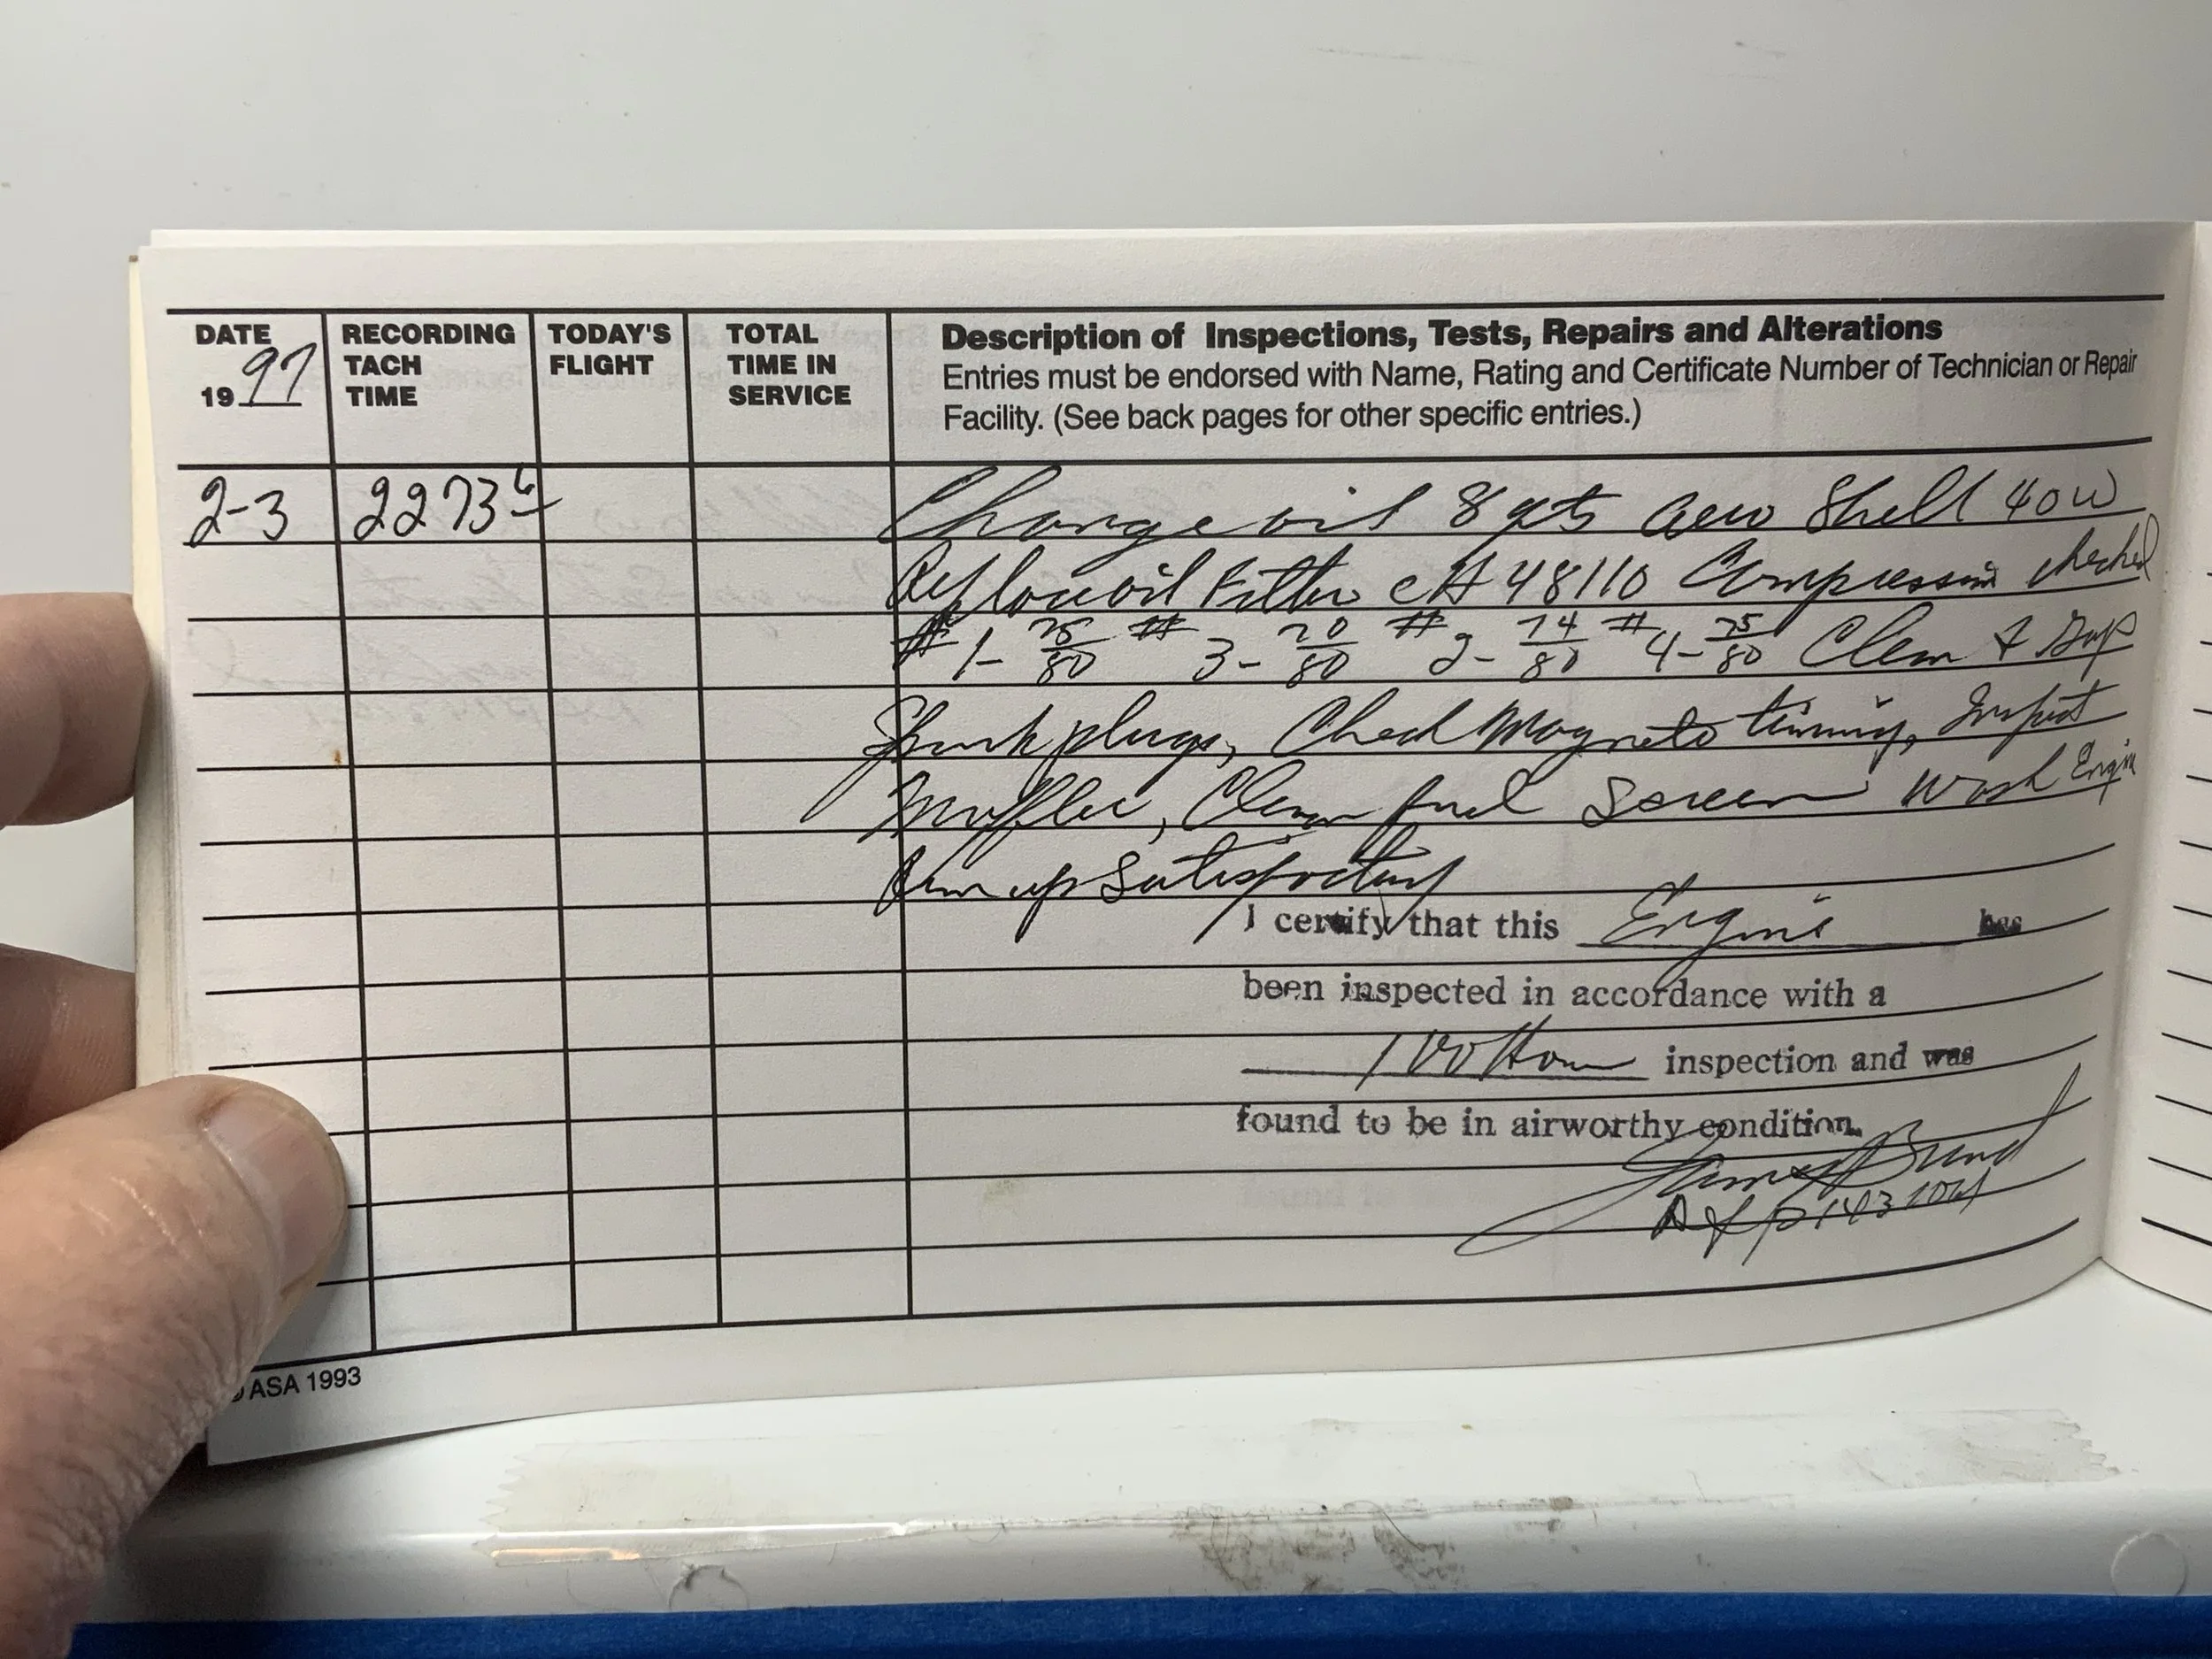 DATE
19 97
RECORDING
TACH
TIME
TODAY'S
FLIGHT
TOTAL
TIME IN
SERVICE
Description of Inspections, Tests, Repairs and Alterations
Entries must be endorsed with Name, Rating and Certificate Number of Technician or Repair
Facility. (See back pages for other specific entries.)
2-3 2273 6 Change oil 8 qts Aero Shell 40W
oil Filter CH 48110 Compression checked
#1- 75/80 #3- 70/80 #2- 74/80 #4- 75/80 Clean & Gap
Spark plugs, Check Magneto timing, Inspect
Muffler, Clean fuel Screen Wash Engin
Run up Satisfactory
I certify that this Engine has
been inspected in accordance with a
100 Hour inspection and was
found to be in airworthy condition.
James
A&P
ASA 1993